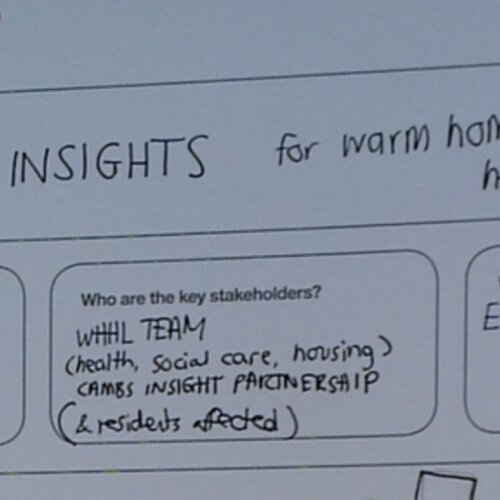 INSIGHTS for warm hom
h
Who are the key stakeholders?
WHHL TEAM
(health, social care, housing)
CAMBS INSIGHT PARTNERSHIP
(& residents affected)
E